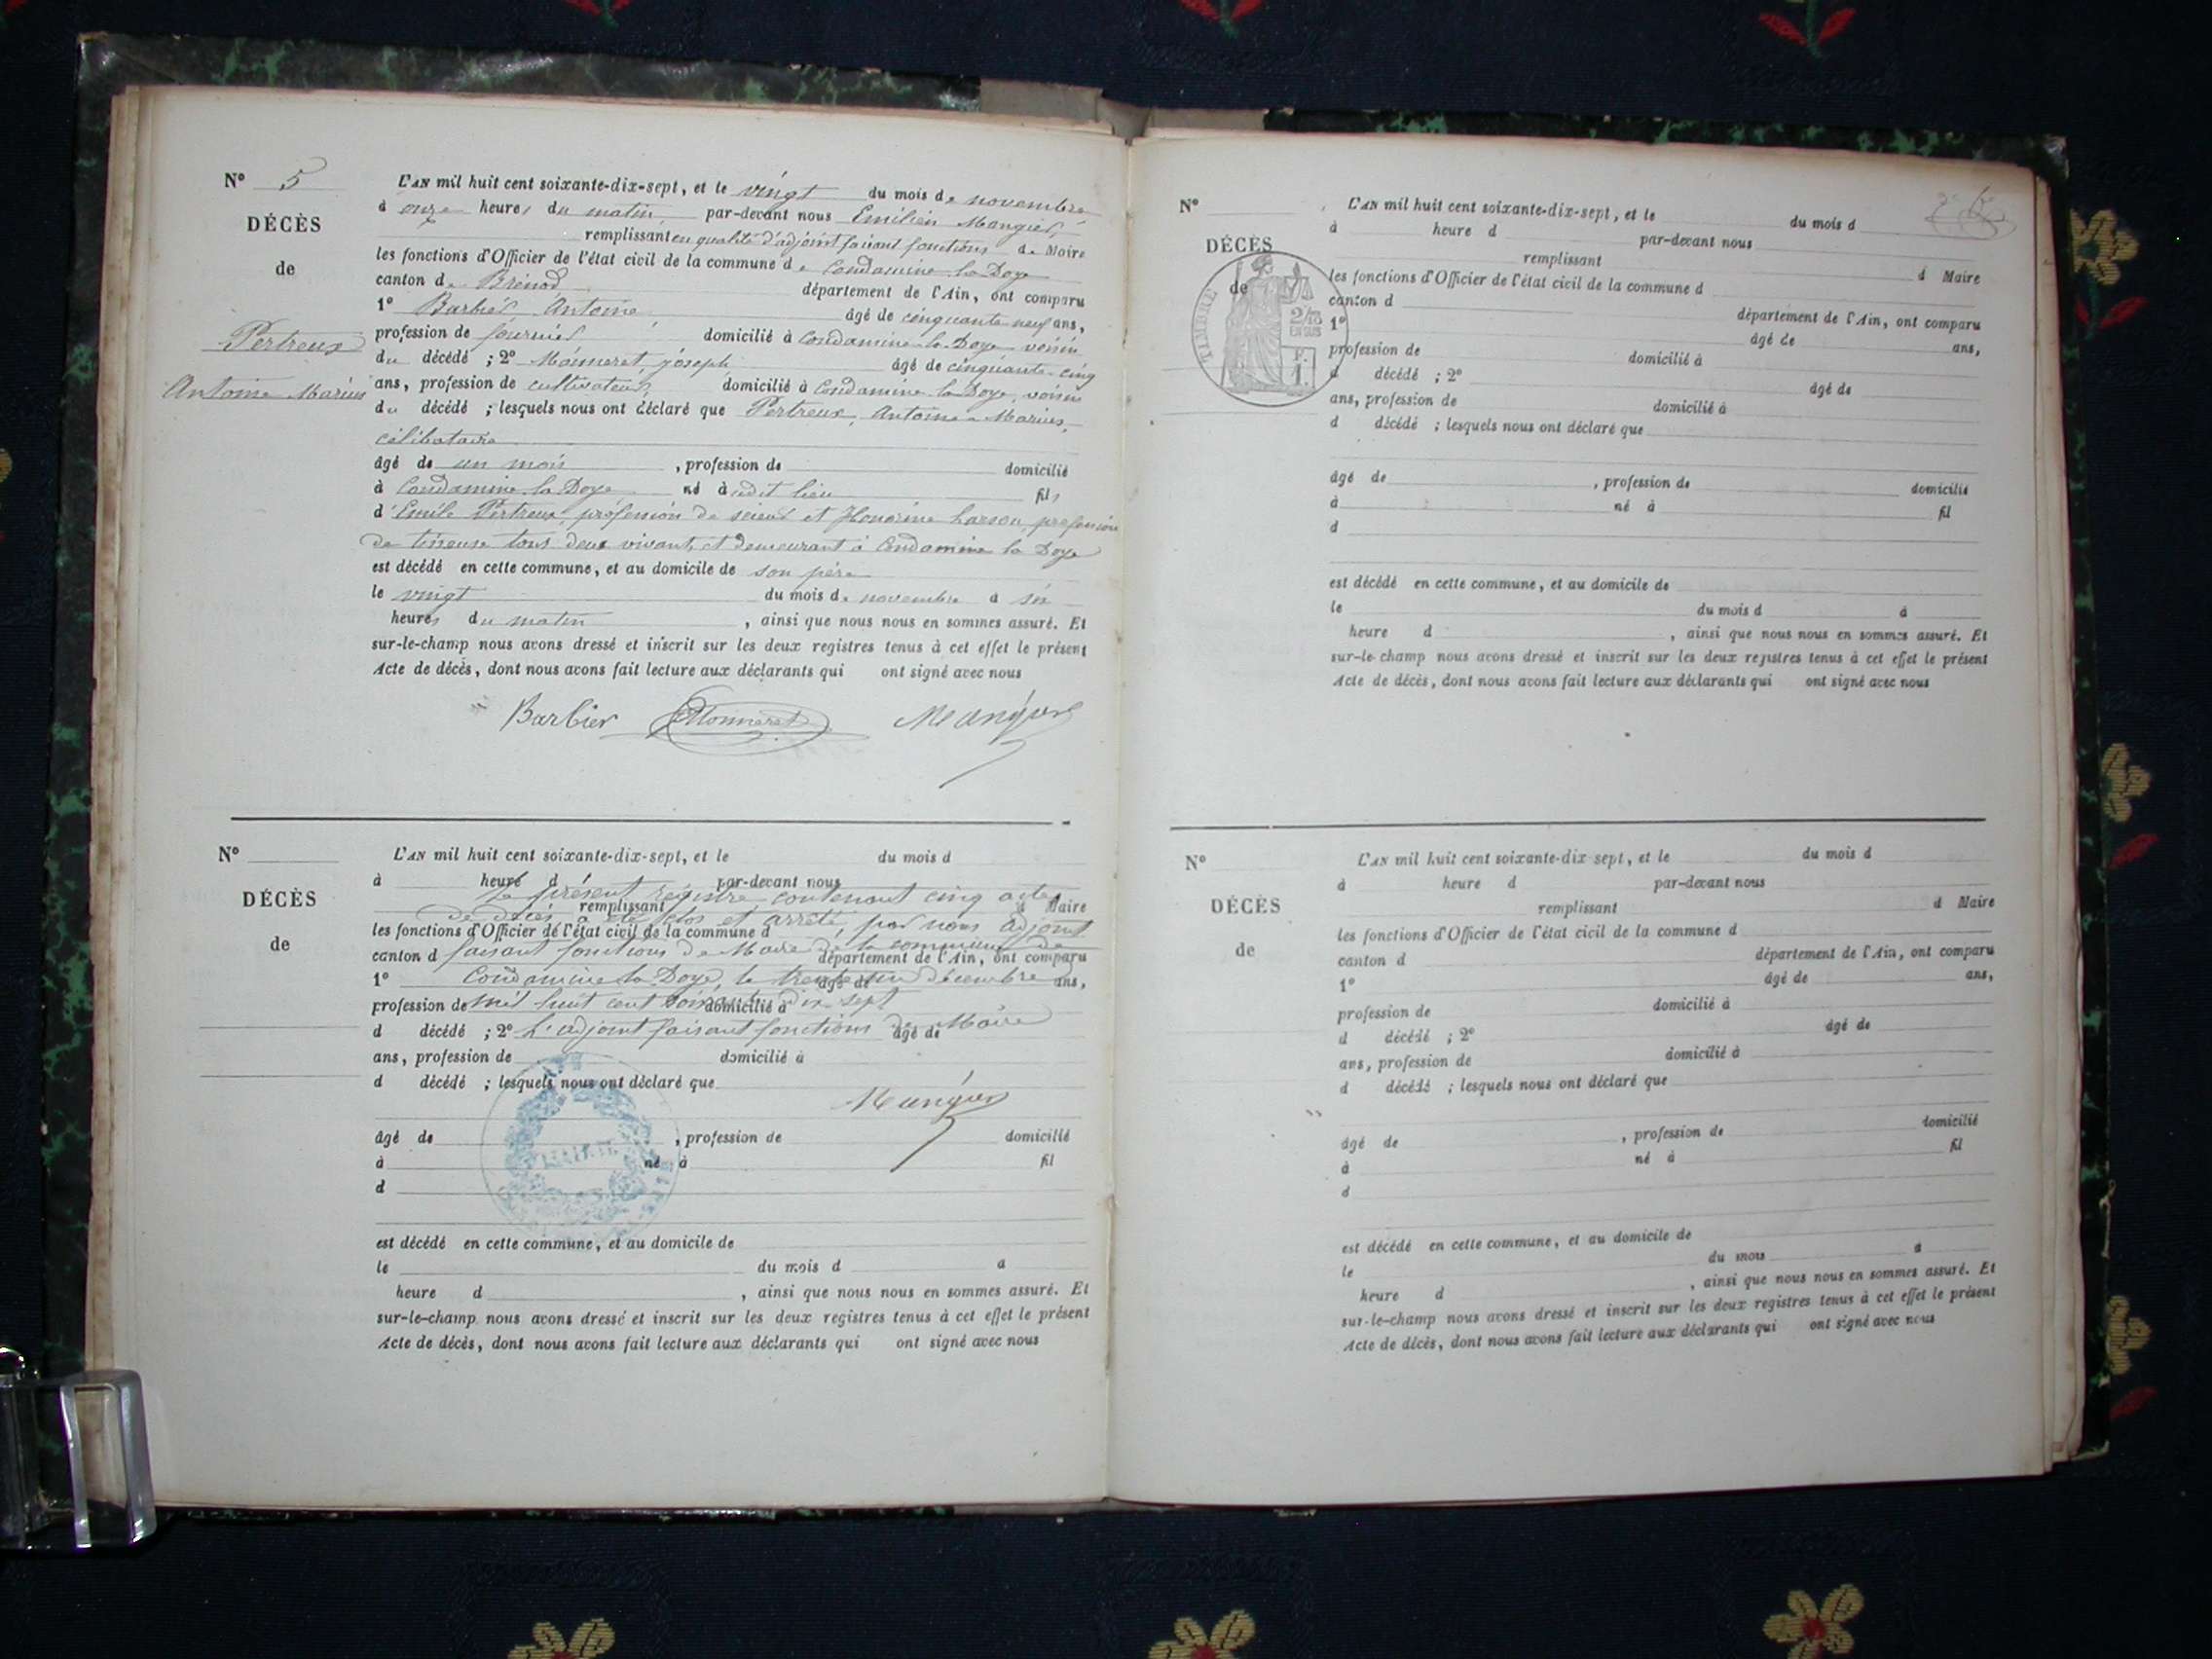 N° 5
DÉCÈS
de
Pertreux
Antoine Marius
L'AN mil huit cent soixante-dix-sept, et le vingt du mois de novembre
à onze heures du matin par-devant nous Emilien
remplissant en qualité d'adjoint faisant fonctions de Maire
les fonctions d'Officier de l'état civil de la commune de Condamine la Doye
canton de Brénod département de l'Ain, ont comparu
1° Barbier Antoine âgé de cinquante neuf ans,
profession de domicilié à Condamine la Doye voisin
du décédé ; 2° Monneret, joseph âgé de cinquante-cinq
ans, profession de cultivateur domicilié à Condamine la Doye, voisin
du décédé ; lesquels nous ont déclaré que Pertreux, Antoine-Marius,
célibataire
âgé de un mois , profession de domicilié
à Condamine la Doye né à udit lieu fils
d'Emile Pertreux, profession de scieur et Honorine profession
de tisseuse tous deux vivant, et demeurant à Condamine la Doye
est décédé en cette commune, et au domicile de son père
le vingt du mois de novembre à six
heures du matin , ainsi que nous nous en sommes assuré. Et
sur-le-champ nous avons dressé et inscrit sur les deux registres tenus à cet effet le présent
Acte de décès, dont nous avons fait lecture aux déclarants qui ont signé avec nous
Barbier Monneret
N°
DÉCÈS
de
L'AN mil huit cent soixante-dix-sept, et le du mois d
à heure d par-devant nous
Le présent registre contenant cinq actes
remplissant d Maire
de décès a été clos et arrêté, par nous Adjoint
les fonctions d'Officier de l'état civil de la commune d
faisant fonctions de Maire de la commune de
canton d département de l'Ain, ont comparu
Condamine la Doye, le trente un décembre
1° âgé de ans,
mil huit cent soixante dix sept
profession de domicilié à
L'adjoint faisant fonctions de Maire
d décédé ; 2° âgé de
ans, profession de domicilié à
d décédé ; lesquels nous ont déclaré que
âgé de , profession de domicilié
à né à fil
d
est décédé en cette commune, et au domicile de
le du mois d à
heure d , ainsi que nous nous en sommes assuré. Et
sur-le-champ nous avons dressé et inscrit sur les deux registres tenus à cet effet le présent
Acte de décès, dont nous avons fait lecture aux déclarants qui ont signé avec nous
N°
DÉCÈS
de
TIMBRE
2/10
EN SUS
F.
1.
L'AN mil huit cent soixante-dix-sept, et le du mois d
à heure d par-devant nous
remplissant d Maire
les fonctions d'Officier de l'état civil de la commune d
canton d département de l'Ain, ont comparu
1° âgé de ans,
profession de domicilié à
d décédé ; 2° âgé de
ans, profession de domicilié à
d décédé ; lesquels nous ont déclaré que
âgé de , profession de domicilié
à né à fil
d
est décédé en cette commune, et au domicile de
le du mois d à
heure d , ainsi que nous nous en sommes assuré. Et
sur-le-champ nous avons dressé et inscrit sur les deux registres tenus à cet effet le présent
Acte de décès, dont nous avons fait lecture aux déclarants qui ont signé avec nous
N°
DÉCÈS
de
L'AN mil huit cent soixante-dix sept, et le du mois d
à heure d par-devant nous
remplissant d Maire
les fonctions d'Officier de l'état civil de la commune d
canton d département de l'Ain, ont comparu
1° âgé de ans,
profession de domicilié à
d décédé ; 2° âgé de
ans, profession de domicilié à
d décédé ; lesquels nous ont déclaré que
âgé de , profession de domicilié
à né à fil
d
est décédé en cette commune, et au domicile de
le du mois à
heure d , ainsi que nous nous en sommes assuré. Et
sur-le-champ nous avons dressé et inscrit sur les deux registres tenus à cet effet le présent
Acte de décès, dont nous avons fait lecture aux déclarants qui ont signé avec nous